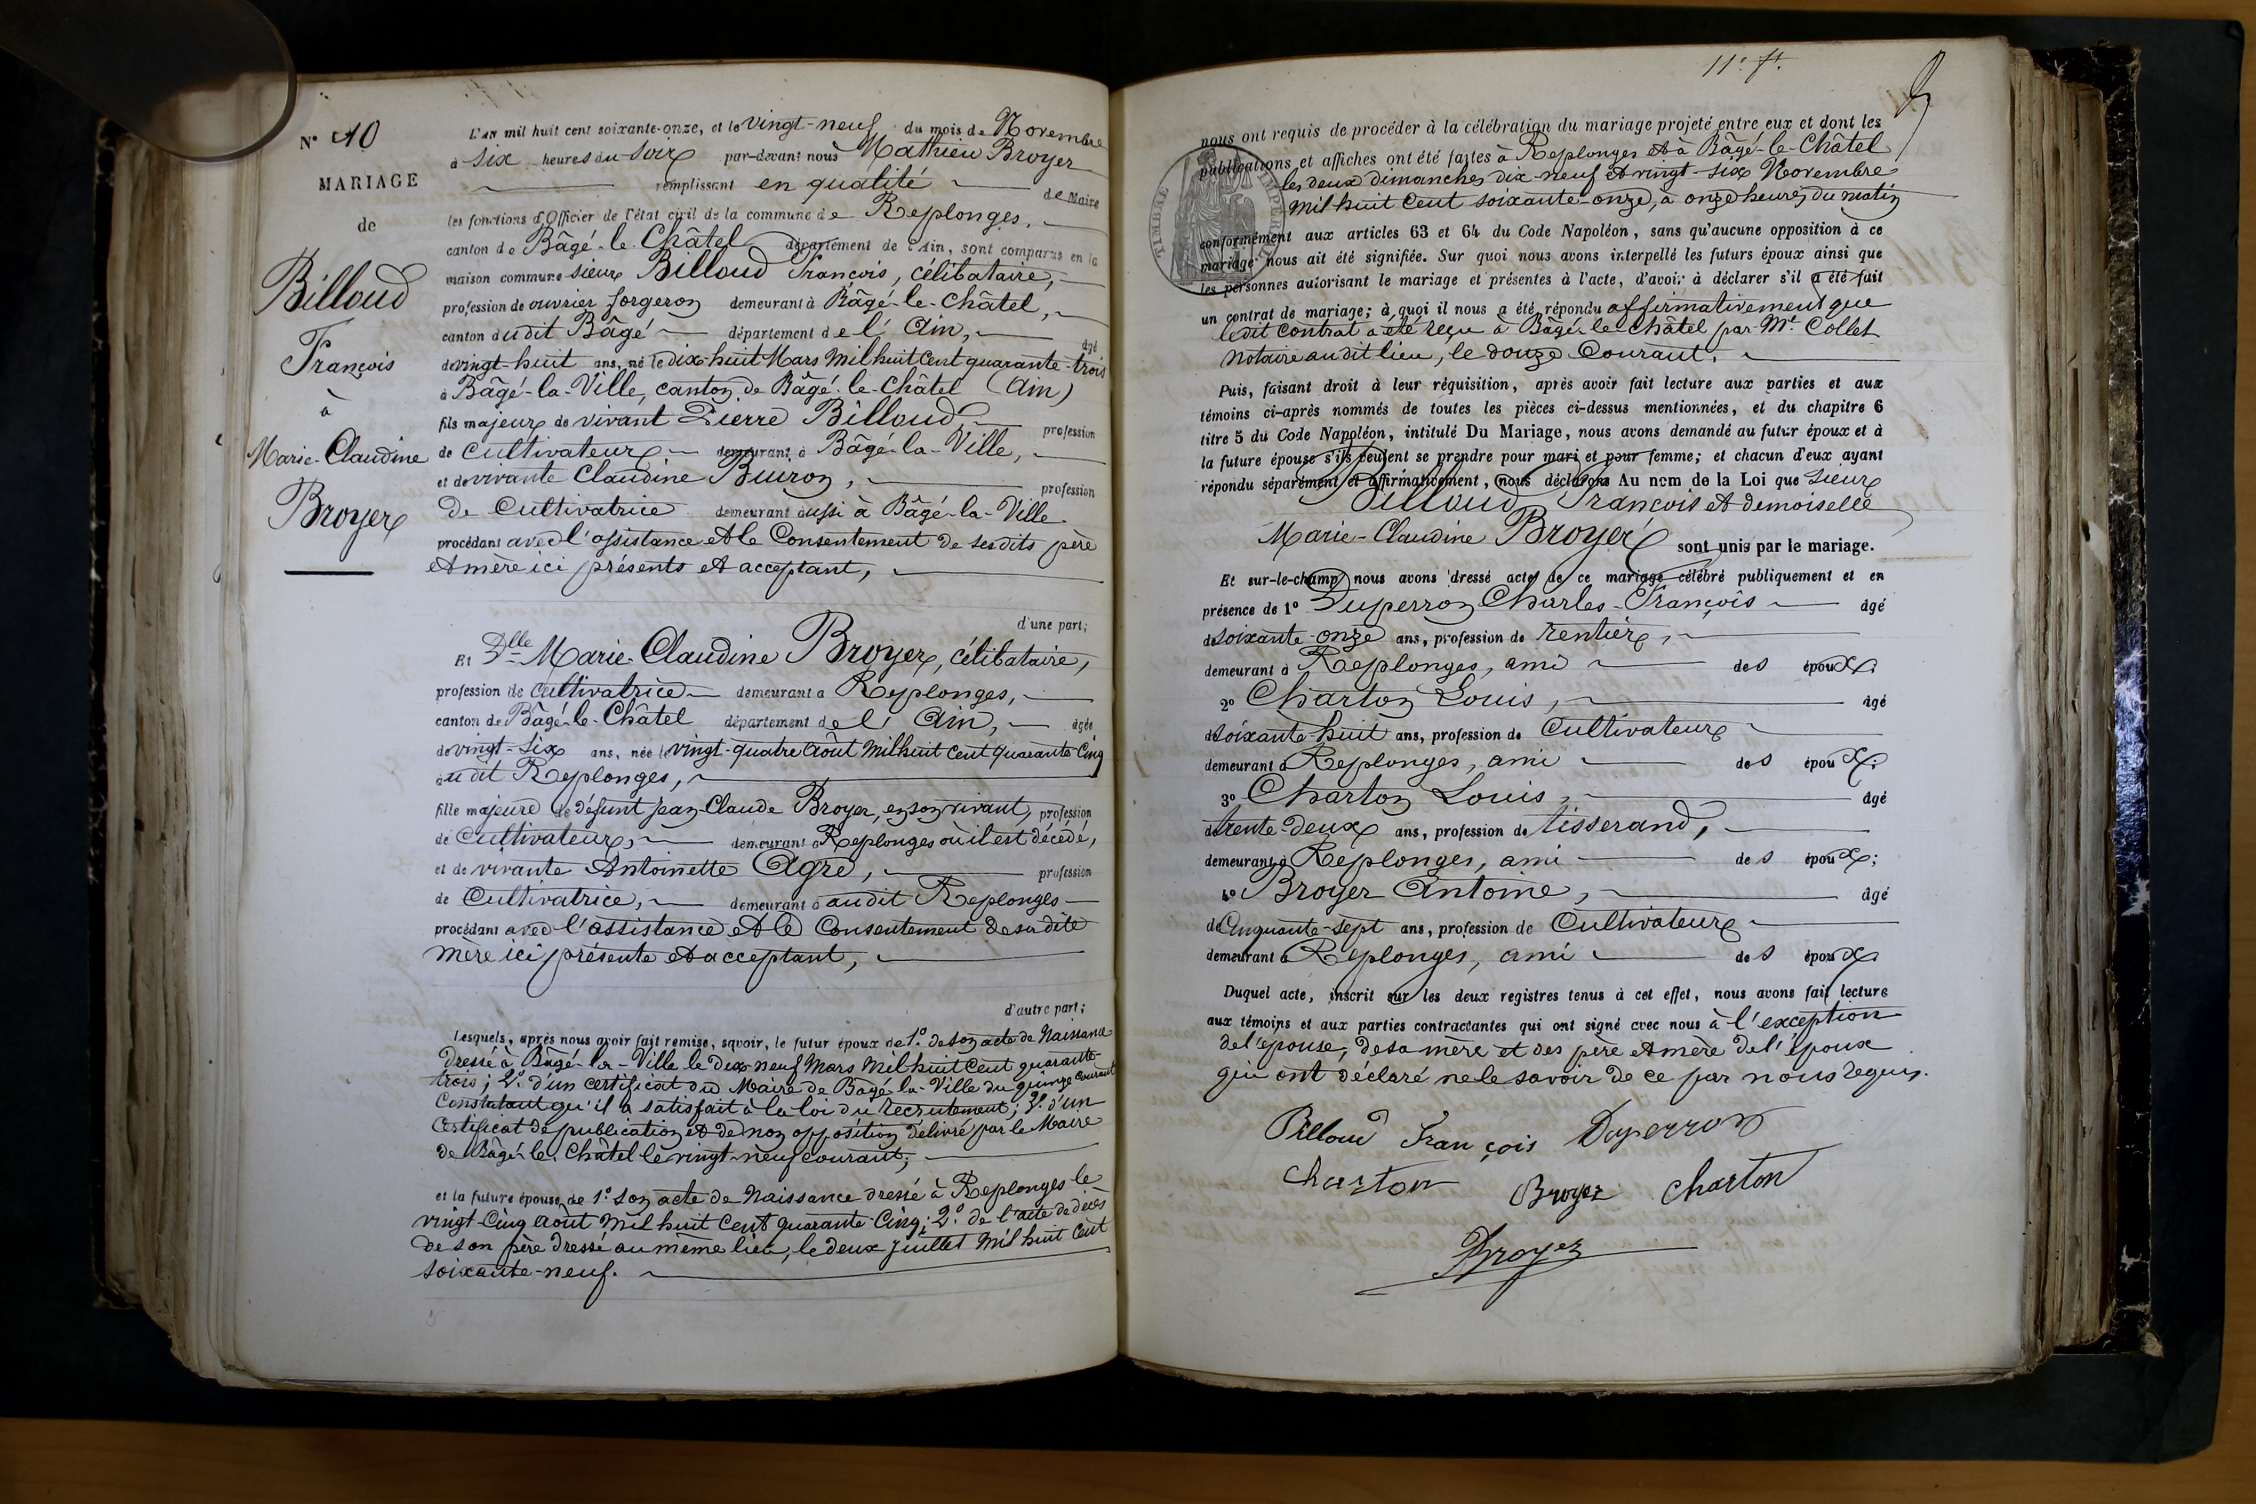 N° 10
MARIAGE
de
Billoud
François
à
Marie-Claudine
Broyer
L'an mil huit cent soixante-onze, et le vingt-neuf du mois de Novembre
à six heures du soir par-devant nous Mathieu Broyer
remplissant en qualité de Maire
les fonctions d'Officier de l'état civil de la commune de Replonges,
canton de Bâgé-le-Châtel département de l'Ain, sont comparus en la
maison commune sieur Billoud François, célibataire,
profession de ouvrier forgeron demeurant à Bâgé-le-Châtel,
canton dudit Bâgé département de l'Ain, âgé
de vingt-huit ans, né le dix-huit Mars mil huit cent quarante-trois
à Bâgé-la-Ville, canton de Bâgé-le-Châtel (Ain)
fils majeur de vivant Pierre Billoud, profession
de Cultivateur demeurant à Bâgé-la-Ville,
et de vivante Claudine Buiron, profession
de Cultivatrice demeurant aussi à Bâgé-la-Ville
procédant avec l'assistance et le Consentement de ses dits père
et mère ici présents et acceptant,
d'une part;
Et Dlle Marie-Claudine Broyer, célibataire,
profession de Cultivatrice demeurant à Replonges,
canton de Bâgé-le-Châtel département de l'Ain, âgée
de vingt-six ans, née le vingt-quatre Août mil huit cent quarante-cinq
audit Replonges,
fille majeure de défunt Jean-Claude Broyer, en son vivant, profession
de Cultivateur, demeurant à Replonges où il est décédé,
et de vivante Antoinette Agre, profession
de Cultivatrice, demeurant à audit Replonges
procédant avec l'assistance et le Consentement de sa dite
mère ici présente et acceptant,
d'autre part;
Lesquels, après nous avoir fait remise, savoir, le futur époux de 1° de son acte de Naissance
dressé à Bâgé-la-Ville le dix-neuf Mars mil huit cent quarante-
trois; 2° d'un certificat du Maire de Bâgé-la-Ville du quinze courant
Constatant qu'il a satisfait à la loi du recrutement; 3° d'un
Certificat de publication et de non opposition délivré par le Maire
de Bâgé-le-Châtel le vingt-neuf courant;
et la future épouse, de 1° son acte de Naissance dressé à Replonges le
vingt-cinq Août mil huit cent quarante-cinq; 2° de l'acte de décès
de son père dressé au même lieu, le deux Juillet mil huit cent
soixante-neuf.
11e ft.
nous ont requis de procéder à la célébration du mariage projeté entre eux et dont les
publications et affiches ont été faites à Replonges et à Bâgé-le-Châtel
les deux dimanches dix-neuf et vingt-six Novembre
mil huit cent soixante-onze, à onze heures du matin
TIMBRE IMPERIAL
conformément aux articles 63 et 64 du Code Napoléon, sans qu'aucune opposition à ce
mariage nous ait été signifiée. Sur quoi nous avons interpellé les futurs époux ainsi que
les personnes autorisant le mariage et présentes à l'acte, d'avoir à déclarer s'il a été fait
un contrat de mariage; à quoi il nous a été répondu affirmativement que
le dit Contrat a été reçu à Bâgé-le-Châtel par Me Collet
Notaire audit lieu, le douze Courant.
Puis, faisant droit à leur réquisition, après avoir fait lecture aux parties et aux
témoins ci-après nommés de toutes les pièces ci-dessus mentionnées, et du chapitre 6
titre 5 du Code Napoléon, intitulé Du Mariage, nous avons demandé au futur époux et à
la future épouse s'ils veulent se prendre pour mari et pour femme; et chacun d'eux ayant
répondu séparément et affirmativement, nous déclarons Au nom de la Loi que Sieur
Billoud François et demoiselle
Marie-Claudine Broyer sont unis par le mariage.
Et sur-le-champ nous avons dressé acte de ce mariage célébré publiquement et en
présence de 1° Duperron Charles-François âgé
de soixante-onze ans, profession de rentier,
demeurant à Replonges, ami des époux;
2° Charton Louis, âgé
de soixante-huit ans, profession de Cultivateur
demeurant à Replonges, ami des époux;
3° Charton Louis, âgé
de trente-deux ans, profession de tisserand,
demeurant à Replonges, ami des époux;
4° Broyer Antoine, âgé
de Cinquante-sept ans, profession de Cultivateur
demeurant à Replonges, ami des époux
Duquel acte, inscrit sur les deux registres tenus à cet effet, nous avons fait lecture
aux témoins et aux parties contractantes qui ont signé avec nous à l'exception
de l'épouse, de sa mère et des père et mère de l'époux
qui ont déclaré ne le savoir de ce par nous requis.
Billoud François Duperron
Charton Broyer Charton
Broyer